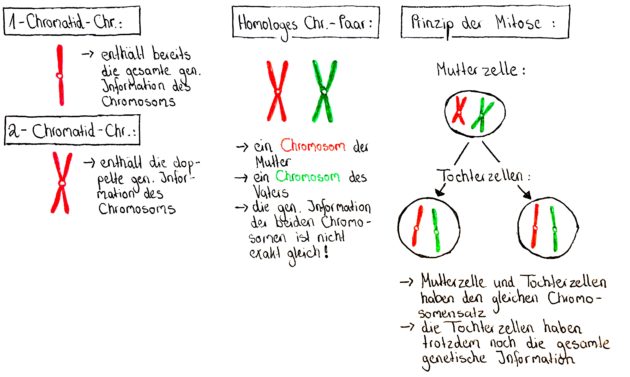 1-Chromatid-Chr.:
→ enthält bereits
die gesamte gen.
Information des
Chromosoms
2-Chromatid-Chr.:
→ enthält die dop-
pelte gen. Infor-
mation des
Chromosoms
Homologes Chr.-Paar:
→ ein Chromosom der
Mutter
→ ein Chromosom des
Vaters
→ die gen. Information
der beiden Chromo-
somen ist nicht
exakt gleich!
Prinzip der Mitose:
Mutterzelle:
Tochterzellen:
→ Mutterzelle und Tochterzellen
haben den gleichen Chromo-
somensatz
→ die Tochterzellen haben
trotzdem noch die gesamte
genetische Information